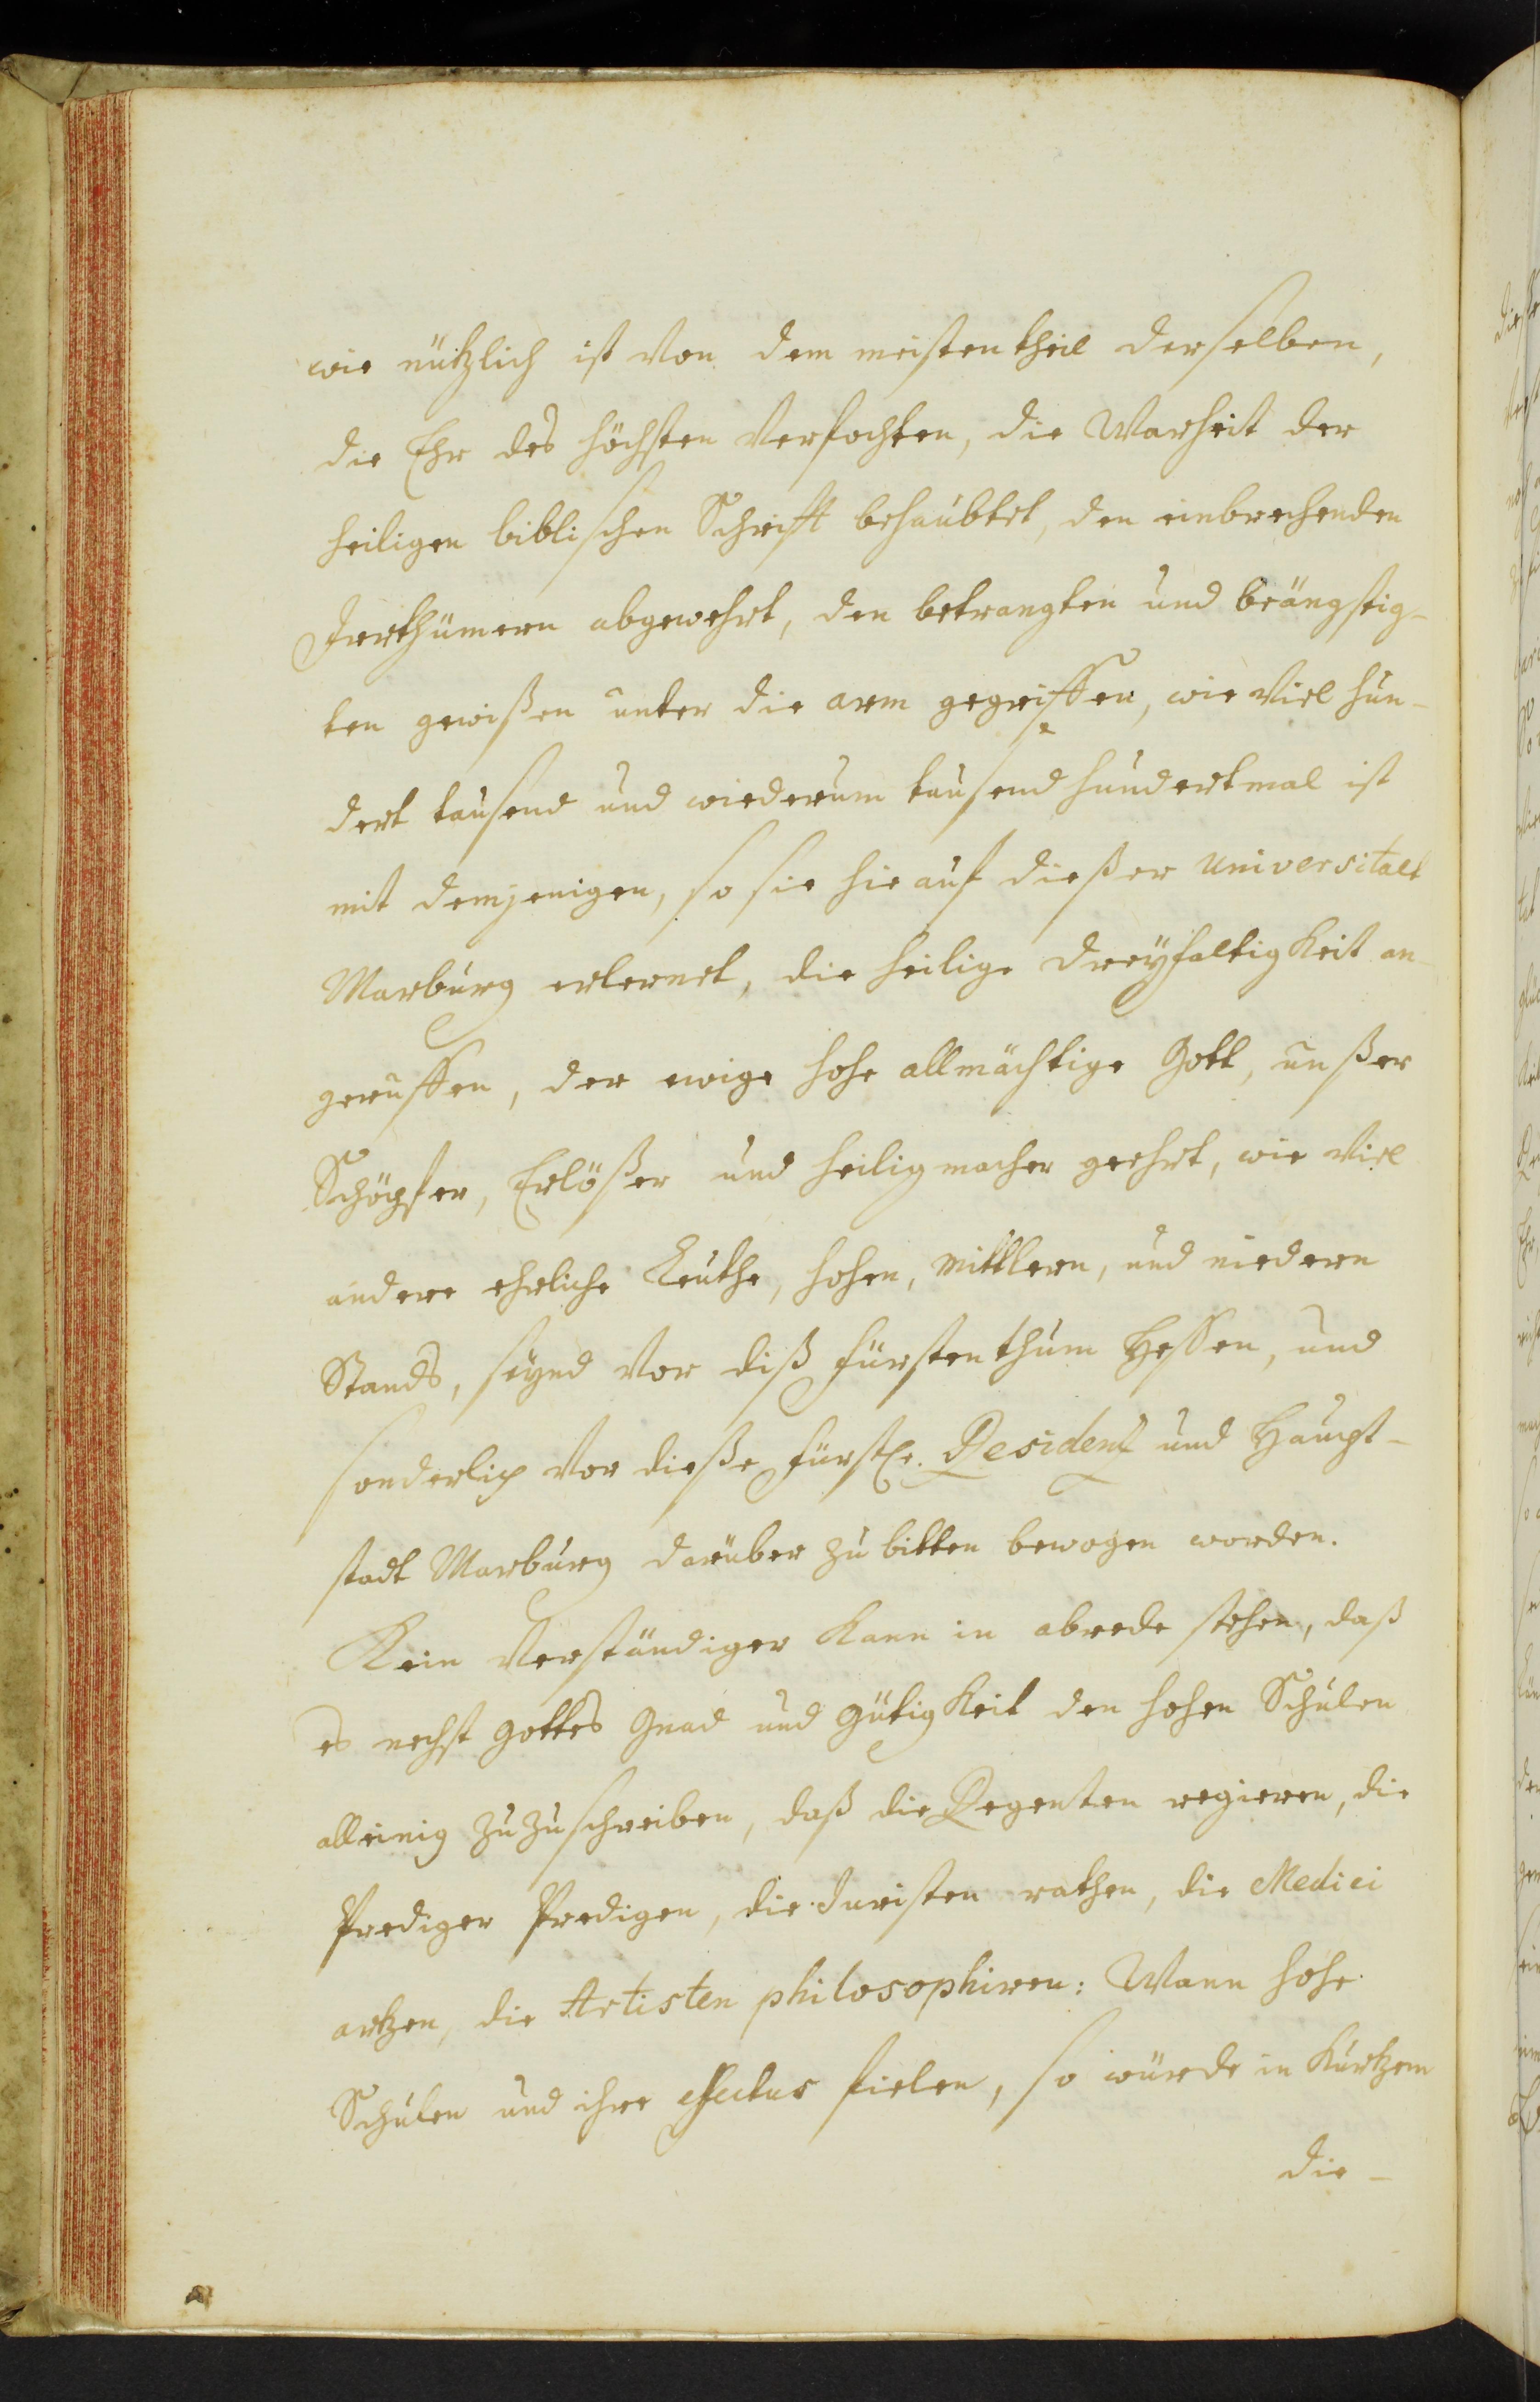 wie nützlich ist von dem meistentheil derselben,
die Ehr des höchsten Verfochten, die Warheit der
heiligen biblischen Schrifft behaubtet, den einbrechenden
Irrthümern abgewehrt, den betrangten und beängstig-
ten gewißen unter die arm gegriffen, wie viel hun-
dert tausend und wiederum tausend hundertmal ist
mit demjenigen, so sie hie auf dießer Universitaet
Marburg erlernet, die heilige Dreyfaltigkeit an-
geruffen, der ewige hohe allmächtige Gott, unßer
Schöpfer, Erlößer und heiligmacher geehrt, wie viel
andere ehrliche Leuthe, hohen, mittlern, und niedern
Stands, seynd vor diß fürstenthum Hessen, und
sonderlich vor dieße fürstl. Residentz und Haupt-
stadt Marburg darüber zu bitten bewogen worden.
Kein Verständiger kann in abrede stehen, daß
es nechst gottes Gnad und gütigkeit den hohen Schulen
alleinig zuzuschreiben, daß die Regenten regieren, die
Prediger Predigen, die Juristen rathen, die Medici
artzen, die Artisten philosophiren: Wann hohe
Schulen und ihre effectus fielen, so würde in kurtzem
die-